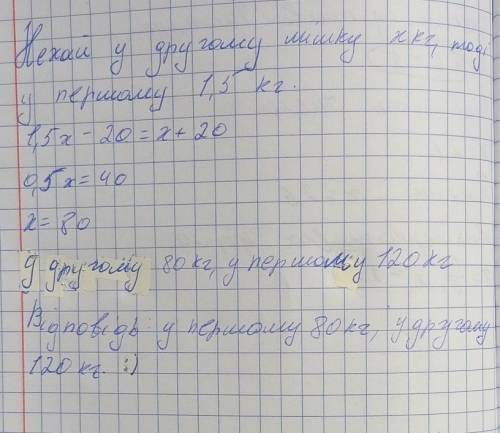 Нехай у другому мішку х кг, тоді
у першому 1,5 кг.
1,5х - 20 = х + 20
0,5х = 40
х = 80
У другому 80 кг, у першому 120 кг
Відповідь: у першому 80 кг, у другому
120 кг. :)